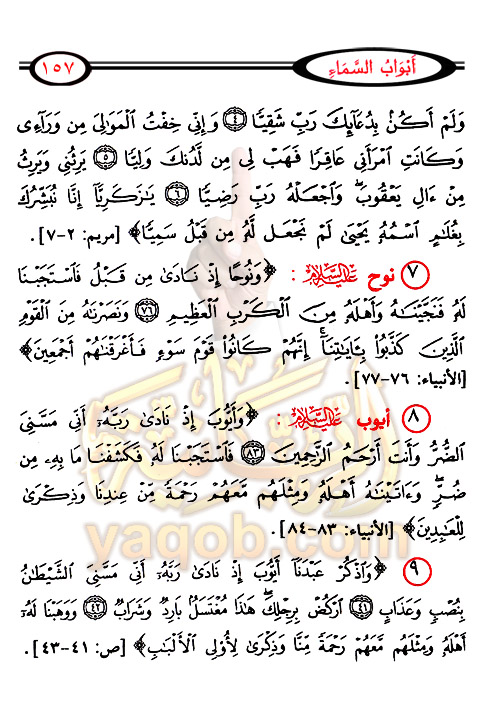 أَبْوَابُ السَّمَاءِ
١٥٧
وَلَمْ أَكُنۢ بِدُعَآئِكَ رَبِّ شَقِيًّا ٤ وَإِنِّى خِفْتُ ٱلْمَوَٰلِىَ مِن وَرَآءِى
وَكَانَتِ ٱمْرَأَتِى عَاقِرًا فَهَبْ لِى مِن لَّدُنكَ وَلِيًّا ٥ يَرِثُنِى وَيَرِثُ
مِنْ ءَالِ يَعْقُوبَ ۖ وَٱجْعَلْهُ رَبِّ رَضِيًّا ٦ يَٰزَكَرِيَّآ إِنَّا نُبَشِّرُكَ
بِغُلَٰمٍ ٱسْمُهُۥ يَحْيَىٰ لَمْ نَجْعَل لَّهُۥ مِن قَبْلُ سَمِيًّا﴾ [مريم: ٢-٧].
٧ نوح عليه السلام : ﴿وَنُوحًا إِذْ نَادَىٰ مِن قَبْلُ فَٱسْتَجَبْنَا
لَهُۥ فَنَجَّيْنَٰهُ وَأَهْلَهُۥ مِنَ ٱلْكَرْبِ ٱلْعَظِيمِ ٧٦ وَنَصَرْنَٰهُ مِنَ ٱلْقَوْمِ
ٱلَّذِينَ كَذَّبُوا۟ بِـَٔايَٰتِنَآ ۚ إِنَّهُمْ كَانُوا۟ قَوْمَ سَوْءٍ فَأَغْرَقْنَٰهُمْ أَجْمَعِينَ﴾
[الأنبياء: ٧٦-٧٧].
٨ أيوب عليه السلام : ﴿وَأَيُّوبَ إِذْ نَادَىٰ رَبَّهُۥٓ أَنِّى مَسَّنِىَ
ٱلضُّرُّ وَأَنتَ أَرْحَمُ ٱلرَّٰحِمِينَ ٨٣ فَٱسْتَجَبْنَا لَهُۥ فَكَشَفْنَا مَا بِهِۦ مِن
ضُرٍّ ۖ وَءَاتَيْنَٰهُ أَهْلَهُۥ وَمِثْلَهُم مَّعَهُمْ رَحْمَةً مِّنْ عِندِنَا وَذِكْرَىٰ
لِلْعَٰبِدِينَ﴾ [الأنبياء: ٨٣-٨٤].
٩ ﴿وَٱذْكُرْ عَبْدَنَآ أَيُّوبَ إِذْ نَادَىٰ رَبَّهُۥٓ أَنِّى مَسَّنِىَ ٱلشَّيْطَٰنُ
بِنُصْبٍ وَعَذَابٍ ٤١ ٱرْكُضْ بِرِجْلِكَ ۖ هَٰذَا مُغْتَسَلٌۢ بَارِدٌ وَشَرَابٌ ٤٢ وَوَهَبْنَا لَهُۥٓ
أَهْلَهُۥ وَمِثْلَهُم مَّعَهُمْ رَحْمَةً مِّنَّا وَذِكْرَىٰ لِأُو۟لِى ٱلْأَلْبَٰبِ﴾ [ص: ٤١-٤٣].
yaqob.com